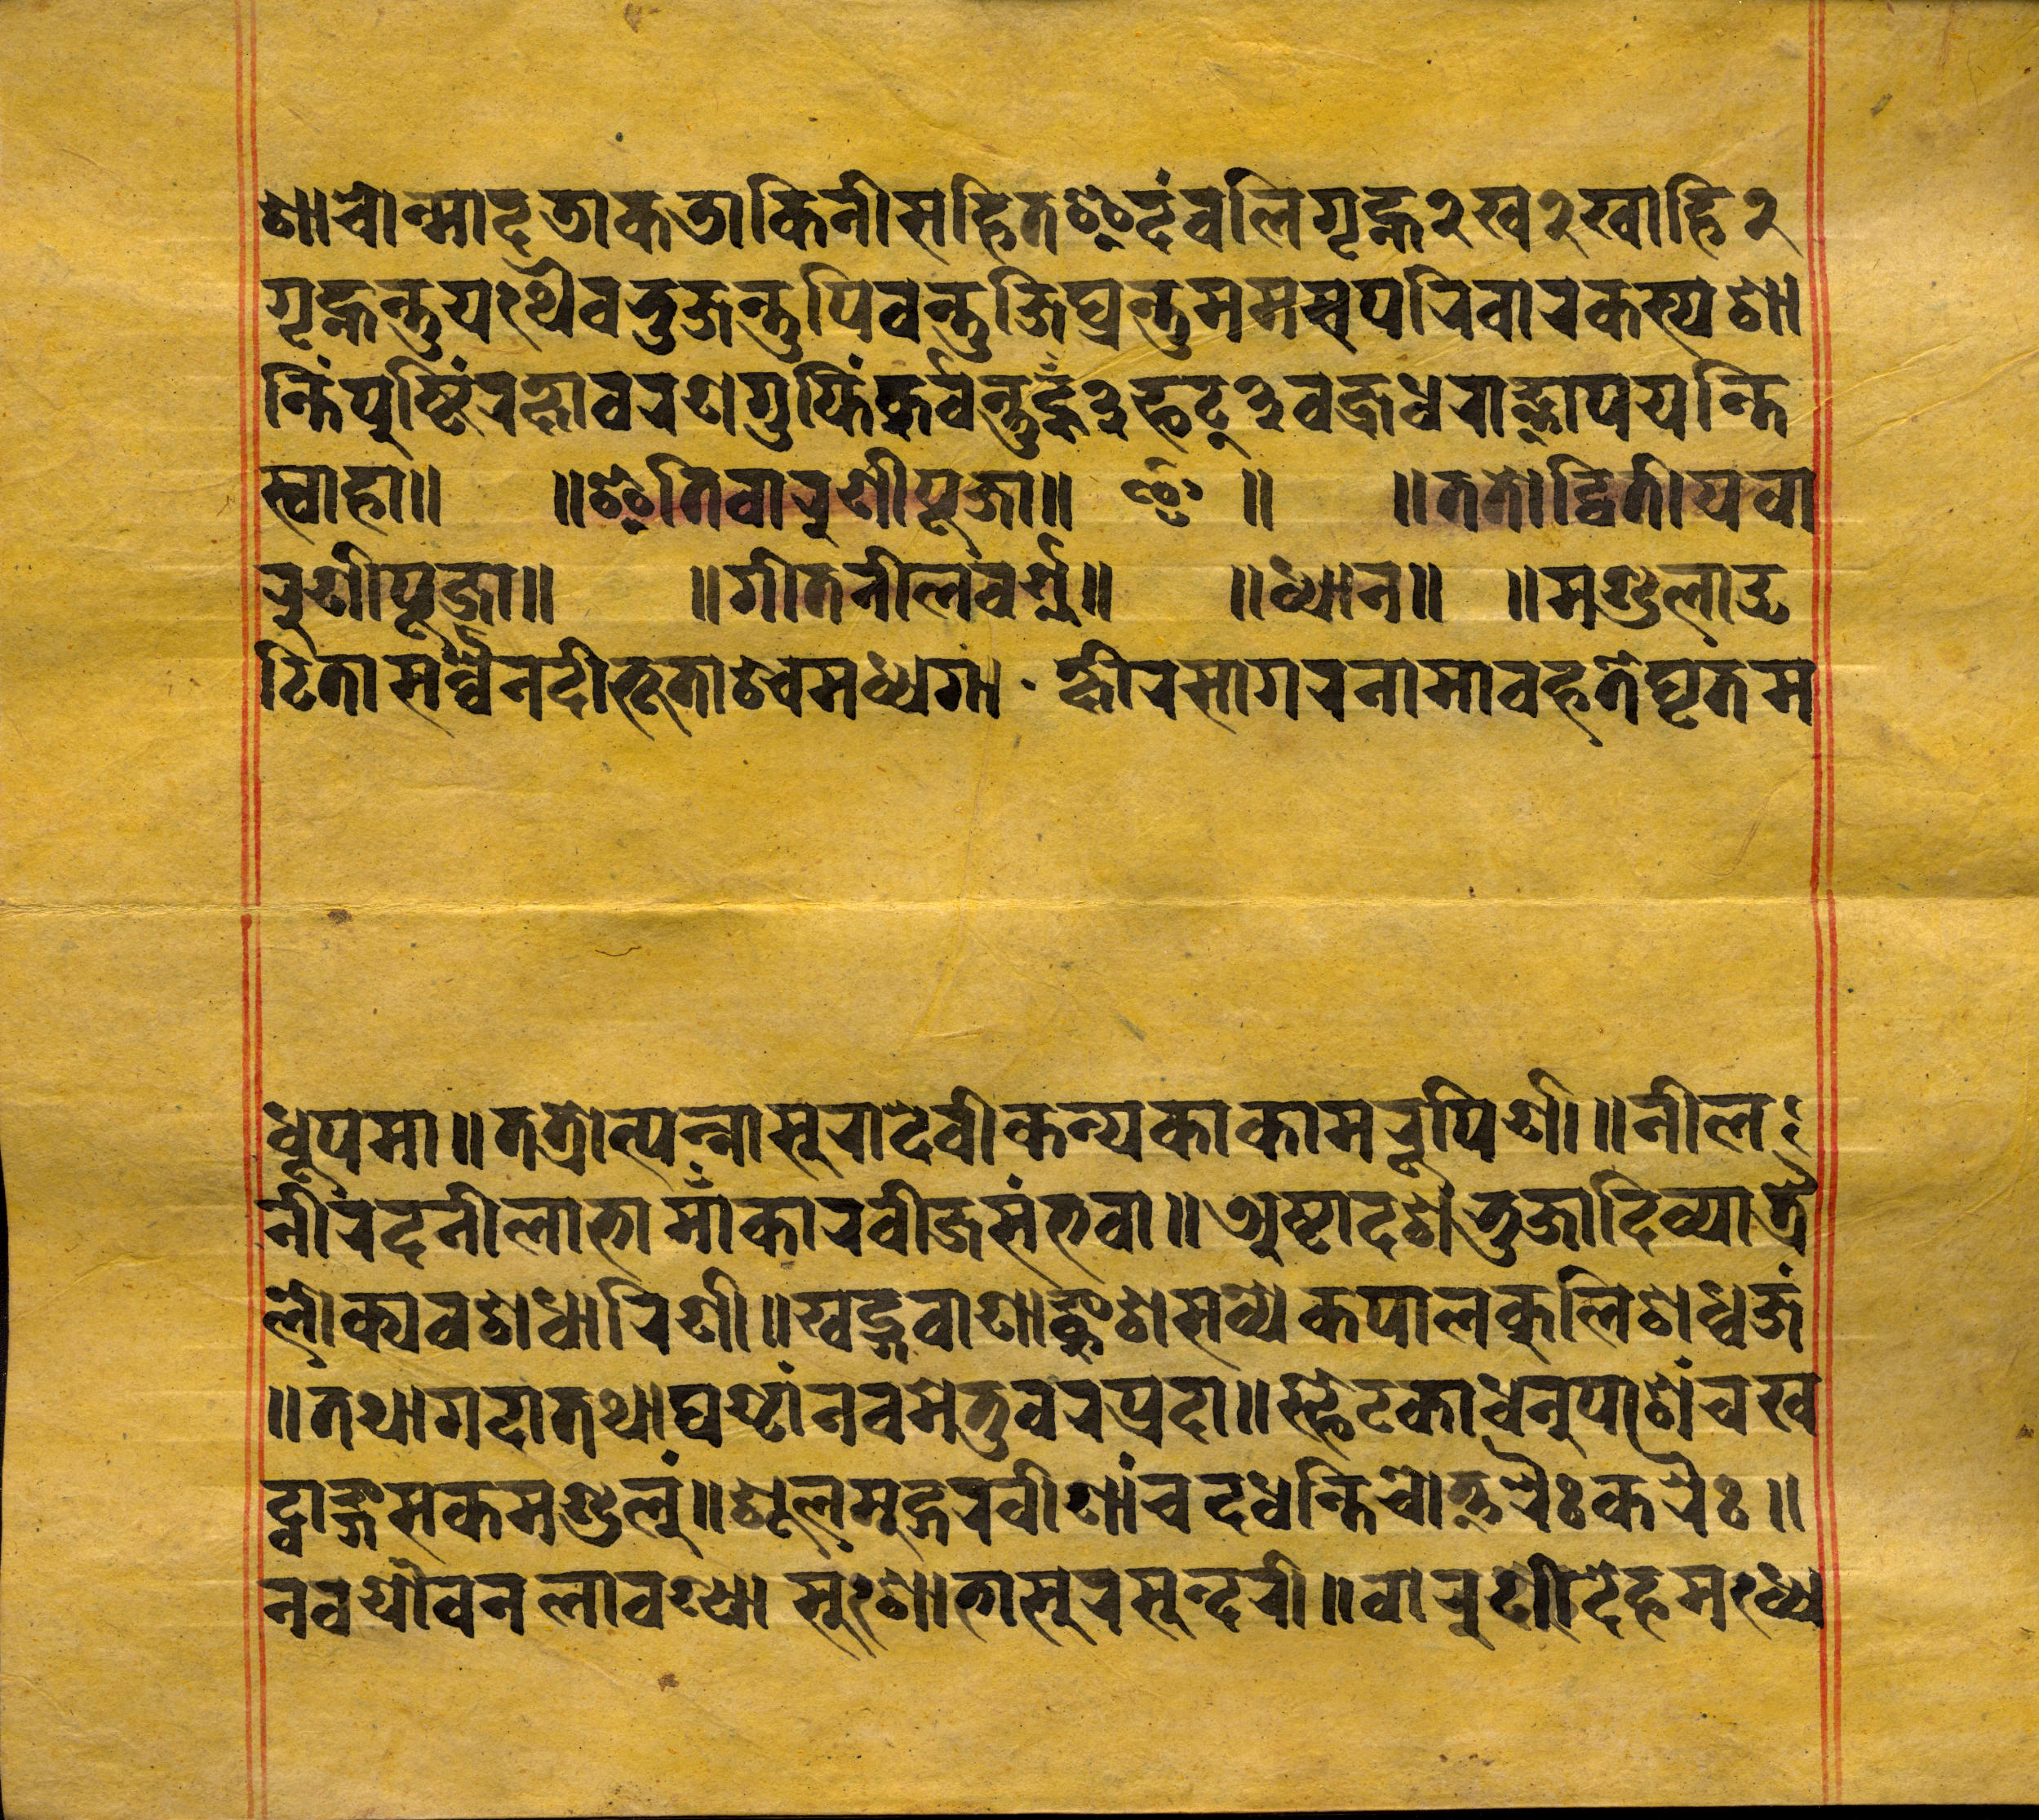 शाचोन्माद डाक डाकिनी सहित इदं वलि गृह्ण २ ख २ खाहि २
गृह्णन्तु यथैव भुजन्तु पिवन्तु जिघ्रन्तु मम सपरिवारकस्य शा
न्तिं पुष्टिं रक्षावरण गुप्तिं कुर्वन्तु हूँ ३ फट् ३ वज्रधरा ज्ञापयन्ति
स्वाहा॥ ॥इति वारुणीपूजा॥ ॥ ॥ततो द्वितीय वा
रुणीपूजा॥ ॥गीत नीलवर्ण॥ ॥ध्यान॥ ॥मण्डलाउ
टिता सर्व्वे नदीभूताश्व मध्यगा · क्षीरसागरनामावहते घृतम
धूपमा॥ तत्रोत्पन्ना सुरादेवी कन्यका कामरूपिणी॥ नील
नीरद नीलाभा माँकारवीजसंभवा॥ अष्टादशै भुजा दिव्या त्रै
लोक्यवशधारिणी॥ खड्गवाणाङ्कुश सव्ये कपालकुलिशध्वजं
॥तथा गदा तथा घण्टां नवमेतु वरप्रदा॥ स्फेटका धनुपाशं च ख
ट्वाङ्ग सकमण्डलुं॥ शूलमुद्गरवीणां च दधन्ति चोत्तरैः करैः॥
नवयौवनलावण्या सुशोभा सुरसुन्दरी॥ वारुणीदेह मध्य